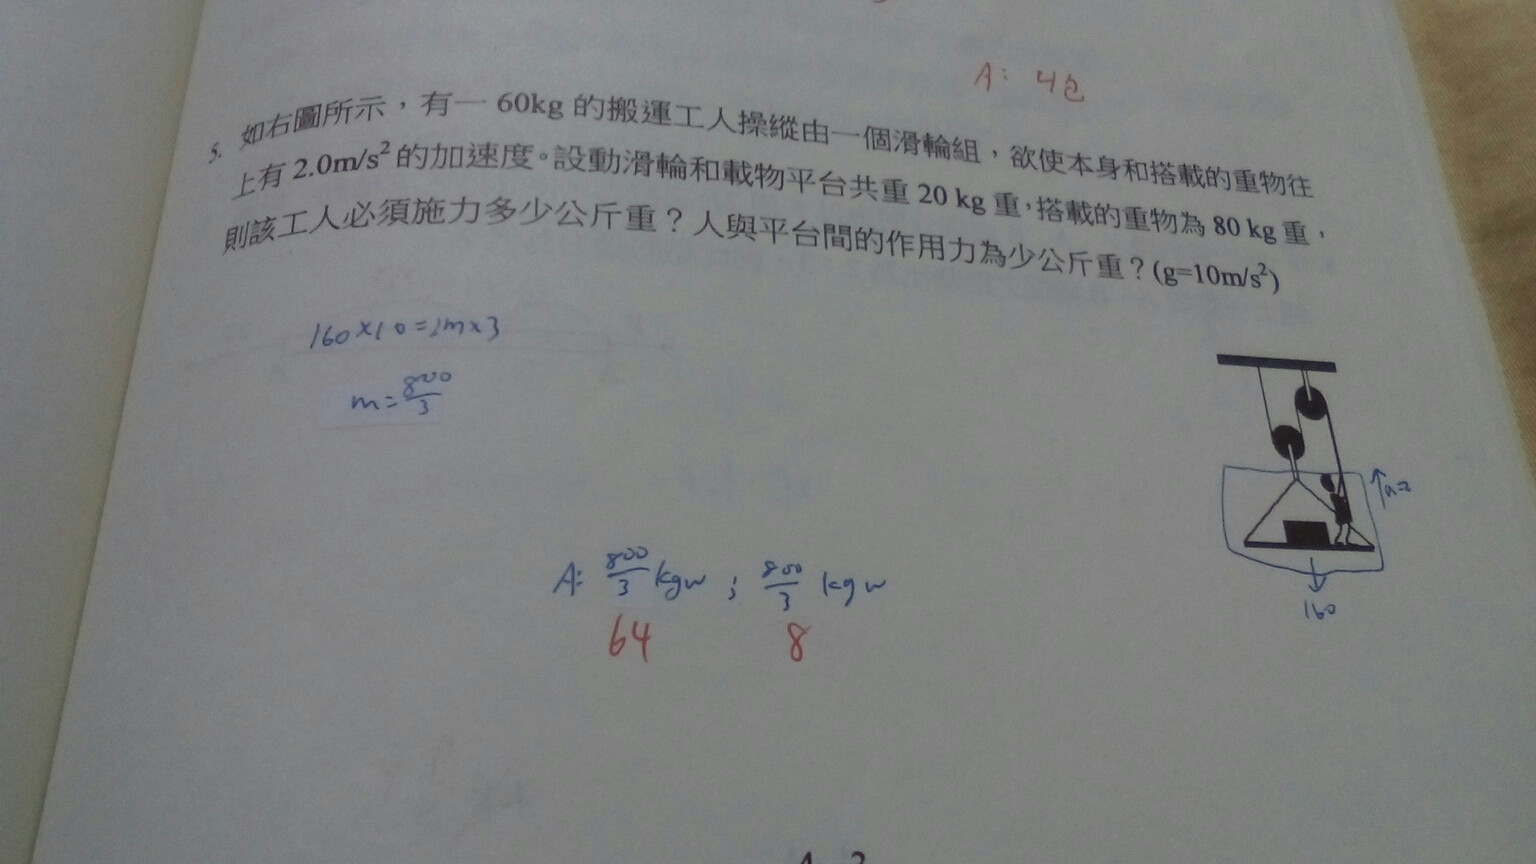 A: 4包
5. 如右圖所示，有一 60kg 的搬運工人操縱由一個滑輪組，欲使本身和搭載的重物往
上有 2.0m/s² 的加速度。設動滑輪和載物平台共重 20 kg 重，搭載的重物為 80 kg 重，
則該工人必須施力多少公斤重？人與平台間的作用力為少公斤重？(g=10m/s²)
160×10=2m×3
m=800/3
a=2
160
A: 800/3 kgw ; 800/3 kgw
64 8